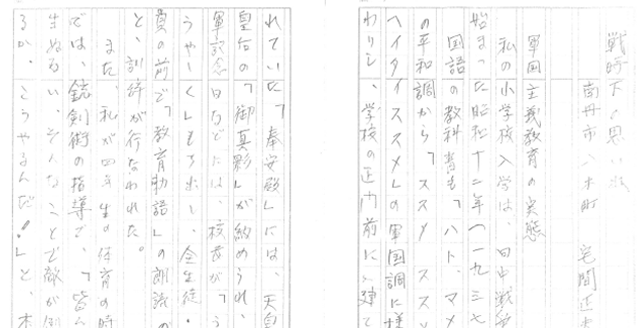 戦時下の思い出
南丹市八木町 宅間正
軍国主義教育の実態
私の小学校入学は、日中戦
始まった昭和十二年(一九三七
国語の教科書も「ハト、マメ
の平和調から「ススメ ススメ
ヘイタイススメ」の軍国調に
わりし、学校の正門前に建て
れていた「奉安殿」には、天皇
皇后の「御真影」が納められ、
軍記念日などには、校長が「う
うやしくもち出し、全生徒・
員の前で「教育勅語」の朗読
と、訓辞が行なわれた。
また、私が四年生の体育の時
では、銃剣術の指導で、「皆
生ぬるい、そんなことで敵が
るか。こうやるんだ!」と、木